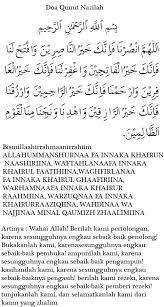 Doa Qunut Nazilah
بِسْمِ اللَّهِ الرَّحْمَنِ الرَّحِيمِ
اَللَّهُمَّ انْصُرْنَا فَإِنَّكَ خَيْرُ النَّاصِرِيْنَ وَافْتَحْ لَنَا
فَإِنَّكَ خَيْرُ الْفَاتِحِيْنَ وَاغْفِرْ لَنَا فَإِنَّكَ خَيْرُ
الْغَافِرِيْنَ وَارْحَمْنَا فَإِنَّكَ خَيْرُ الرَّاحِمِيْنَ وَارْزُقْنَا
فَإِنَّكَ خَيْرُ الرَّازِقِيْنَ وَاهْدِنَا وَنَجِّنَا مِنَ الْقَوْمِ
الظَّالِمِيْنَ
Bismillashirrahmaanirrahiim
ALLAHUMMANSHURNAA FA INNAKA KHAIRUN
NAASHIRIINA, WAFTAHLANAAFA INNAKA
KHAIRUL FAATIHIINA,WAGHFIRLANAA
FA INNAKA KHAIRUL GHAAFIRIINA,
WARHAMNAAFA INNAKA KHAIRUR
RAAHIMIINA, WARZUQNAA FA INNAKA
KHAIRURRAAZIQIINA, WAHDINAA WA
NAJJINAA MINAL QAUMIZH ZHAALIMIINA
Artinya : Wahai Allah! Berilah kami pertolongan,
kerana sesungguhnya engkau sebaik-baik penolong!
Bukakanlah kami, karenasesungguhnya engkau
sebaik-baik pembuka! ampunilah kami, karena
sesungguhnya engkau sebaik-baik pengampun!
kasihanilah kami, karena sesungguhnya engkau
sebaik-baiknya pengasih! berilah kami rezeki, kerana
sesungguhnya engkau sebaik-baik pemberi rezeki!
tunjukanlah kami, dan selamatkanlah kami dari
kaum yang dhalim